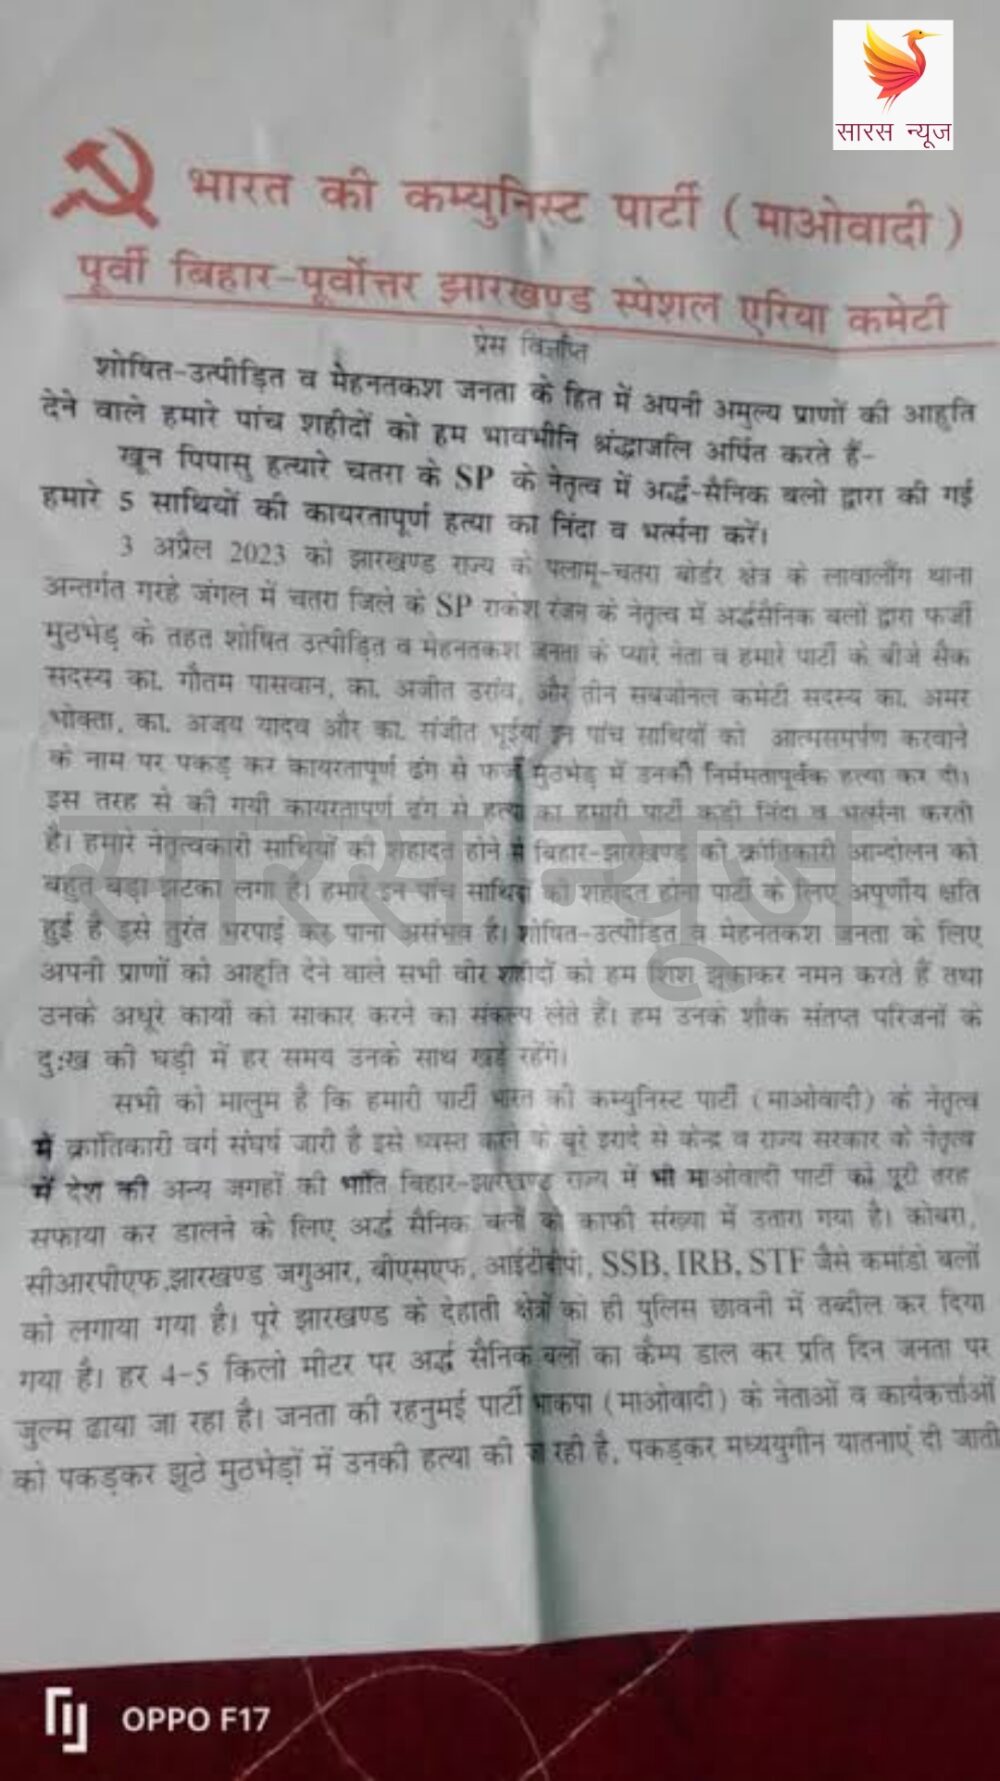 सारस न्यूज
भारत की कम्युनिस्ट पार्टी ( माओवादी )
पूर्वी बिहार-पूर्वोत्तर झारखण्ड स्पेशल एरिया कमेटी
प्रेस विज्ञप्ति
शोषित-उत्पीड़ित व मेहनतकश जनता के हित में अपनी अमुल्य प्राणों की आहुति
देने वाले हमारे पांच शहीदों को हम भावभीनि श्रंद्धाजलि अर्पित करते हैं-
खून पिपासु हत्यारे चतरा के SP के नेतृत्व में अर्द्ध-सैनिक बलो द्वारा की गई
हमारे 5 साथियों की कायरतापूर्ण हत्या का निंदा व भर्त्सना करें।
3 अप्रैल 2023 को झारखण्ड राज्य के पलामू-चतरा बोर्डर क्षेत्र के लावालौंग थाना
अन्तर्गत गरहे जंगल में चतरा जिले के SP राकेश रंजन के नेतृत्व में अर्द्धसैनिक बलों द्वारा फर्जी
मुठभेड़ के तहत शोषित उत्पीड़ित व मेहनतकश जनता के प्यारे नेता व हमारे पार्टी के बीजे सैक
सदस्य का. गौतम पासवान, का. अजीत उरांव, और तीन सबजोनल कमेटी सदस्य का. अमर
भोक्ता, का. अजय यादव और का. संजीत भूईयां इन पांच साथियों को आत्मसमर्पण करवाने
के नाम पर पकड़ कर कायरतापूर्ण ढंग से फर्जी मुठभेड़ में उनकी निर्ममतापूर्वक हत्या कर दी।
इस तरह से की गयी कायरतापूर्ण ढंग से हत्या का हमारी पार्टी कड़ी निंदा व भर्त्सना करती
है। हमारे नेतृत्वकारी साथियों की शहादत होने से बिहार-झारखण्ड की क्रांतिकारी आन्दोलन को
बहुत बड़ा झटका लगा है। हमारे इन पांच साथियों की शहादत होना पार्टी के लिए अपूर्णीय क्षति
हुई है इसे तुरंत भरपाई कर पाना असंभव है। शोषित-उत्पीड़ित व मेहनतकश जनता के लिए
अपनी प्राणों की आहुति देने वाले सभी वीर शहीदों को हम शिश झुकाकर नमन करते हैं तथा
उनके अधूरे कार्यों को साकार करने का संकल्प लेते हैं। हम उनके शौक संतप्त परिजनों के
दु:ख की घड़ी में हर समय उनके साथ खड़े रहेंगे।
सभी को मालुम है कि हमारी पार्टी भारत की कम्युनिस्ट पार्टी (माओवादी) के नेतृत्व
में क्रांतिकारी वर्ग संघर्ष जारी है इसे ध्वस्त करने के बूरे इरादे से केन्द्र व राज्य सरकार के नेतृत्व
में देश की अन्य जगहों की भाँति बिहार-झारखण्ड राज्य में भी माओवादी पार्टी को पूरी तरह
सफाया कर डालने के लिए अर्द्ध सैनिक बलों को काफी संख्या में उतारा गया है। कोबरा,
सीआरपीएफ,झारखण्ड जगुआर, बीएसएफ, आईटीबीपी, SSB, IRB, STF जैसे कमांडो बलों
को लगाया गया है। पूरे झारखण्ड के देहाती क्षेत्रों को ही पुलिस छावनी में तब्दील कर दिया
गया है। हर 4-5 किलो मीटर पर अर्द्ध सैनिक बलों का कैम्प डाल कर प्रति दिन जनता पर
जुल्म ढाया जा रहा है। जनता की रहनुमई पार्टी भाकपा (माओवादी) के नेताओं व कार्यकर्त्ताओं
को पकड़कर झूठे मुठभेड़ों में उनकी हत्या की जा रही है, पकड़कर मध्ययुगीन यातनाएं दी जाती
सारस न्यूज
OPPO F17